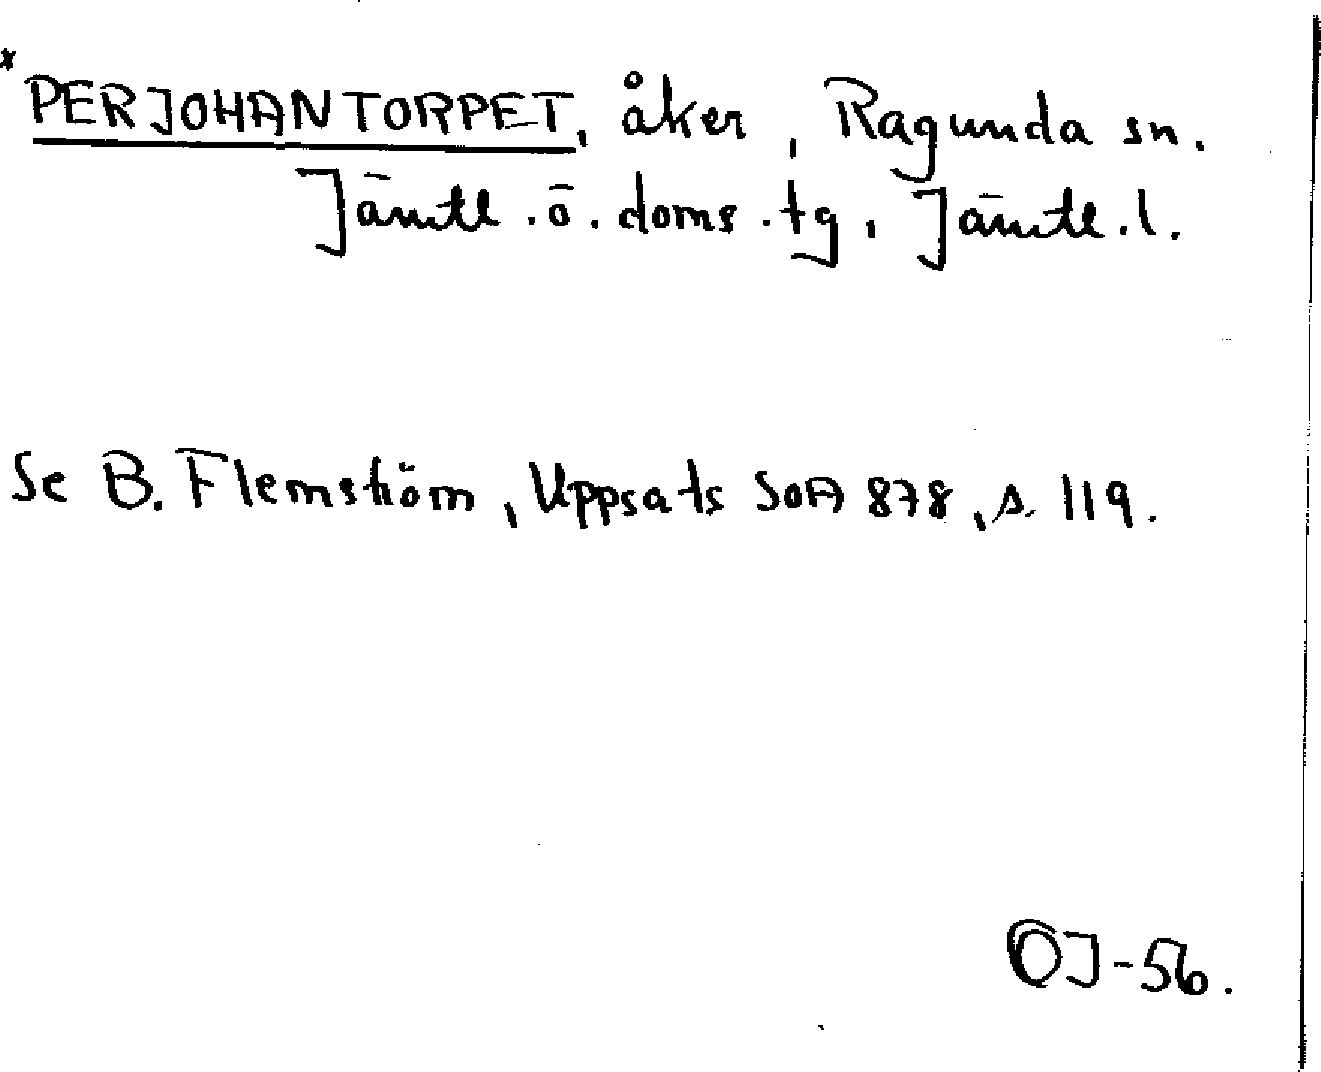 *PERJOHANTORPET, åker, Ragunda sn.
Jämtl.ö.doms.tg, Jämtl.l.
Se B. Flemström, Uppsats SOA 878, s. 119.
OJ-56.